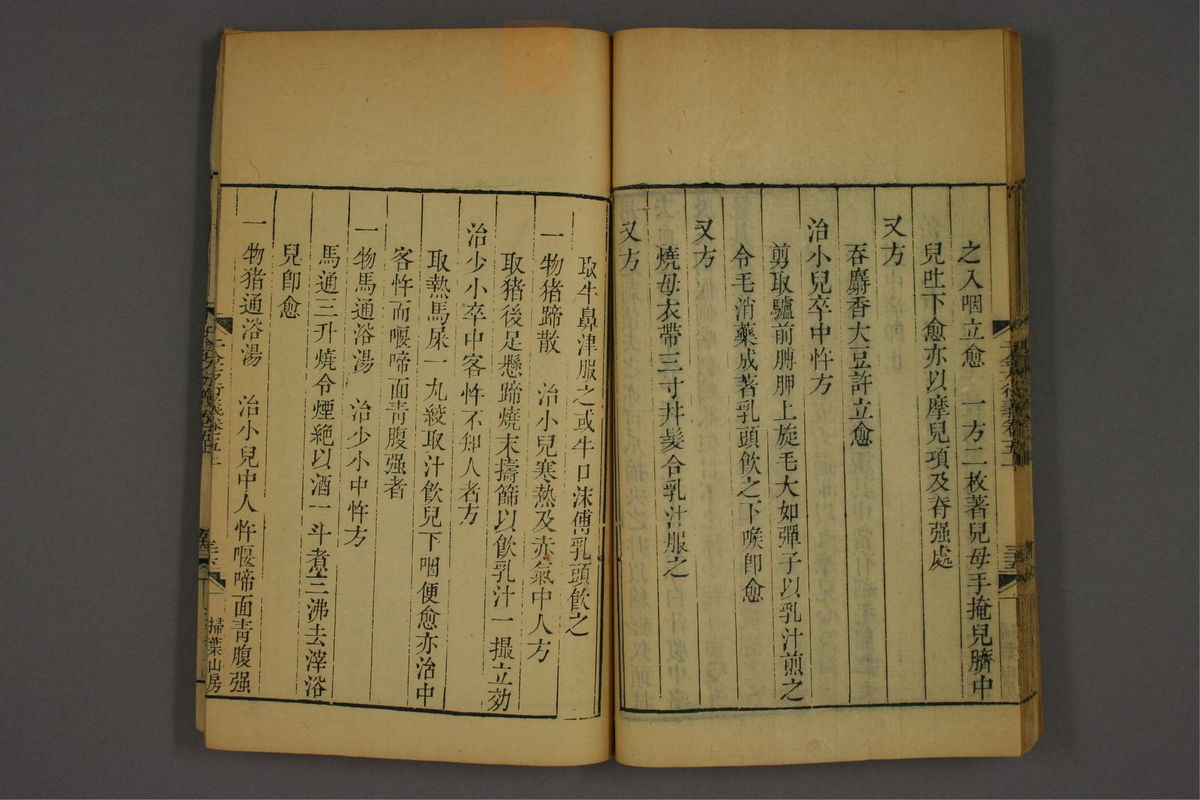 之入咽立愈　一方二枚著兒母手掩兒臍中
兒吐下愈亦以摩兒項及脊强處
又方
吞麝香大豆許立愈
治小兒卒中忤方
剪取驢前膊胛上旋毛大如彈子以乳汁煎之
令毛消藥成著乳頭飮之下喉卽愈
又方
燒母衣帶三寸幷髮合乳汁服之
又方
取牛鼻津服之或牛口沫傅乳頭飮之
一物猪蹄散　治小兒寒熱及赤氣中人方
取猪後足懸蹄燒末擣篩以飮乳汁一撮立効
治少小卒中客忤不知人者方
取熱馬屎一丸絞取汁飮兒下咽便愈亦治中
客忤而㖶啼面青腹强者
一物馬通浴湯　治少小中忤方
馬通三升燒令煙絕以酒一斗煮三沸去滓浴
兒卽愈
一物猪通浴湯　治小兒中人忤㖶啼面青腹强
掃葉山房